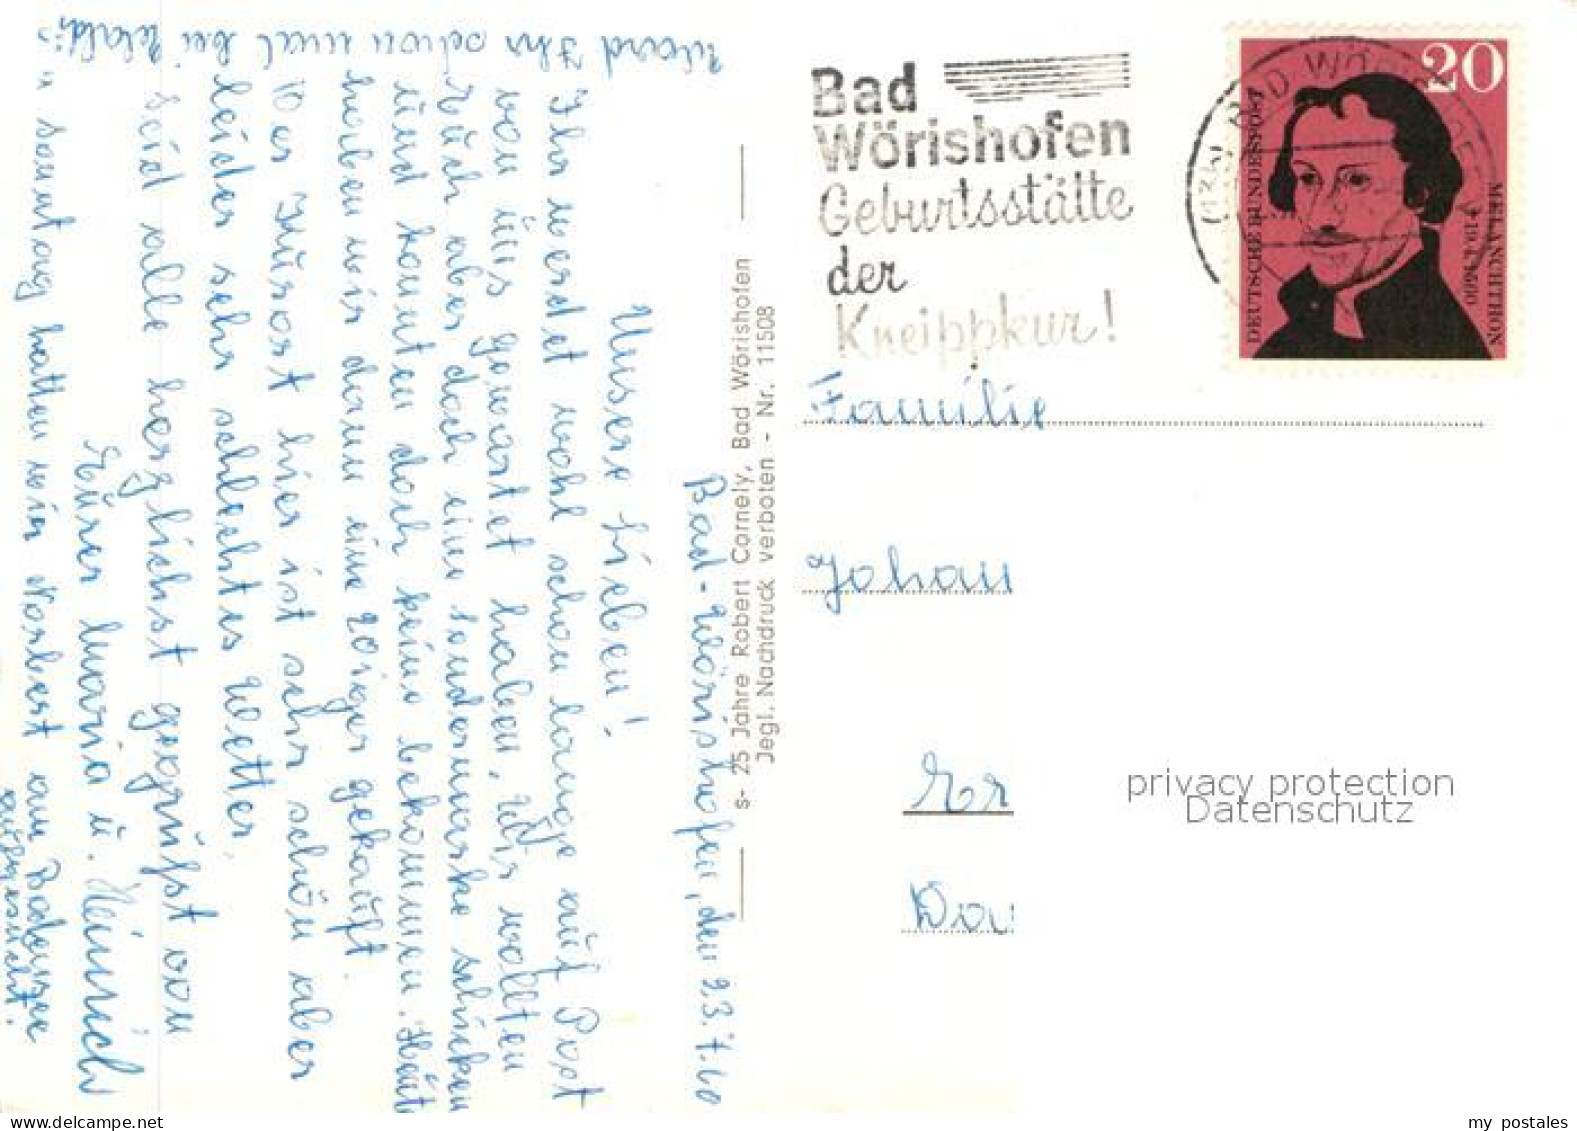 Bad-Wörishofen, den 23.7.60
Unsere Lieben!
Ihr werdet wohl schon lange auf Post
von uns gewartet haben. Wir wollten
Euch aber doch eine Sondermarke schicken
und konnten doch keine bekommen. Heute
haben wir dann eine 20iger gekauft.
Der Kurort hier ist sehr schön aber
leider sehr schlechtes Wetter.
Seid alle herzlichst gegrüßt von
Eurer Maria u. Heinrich
Sonntag hatten wir Norbert am Bodensee
aufgesucht.
Ward Ihr schon mal bei
s- 25 Jahre Robert Cornely, Bad Wörishofen
Jegl. Nachdruck verboten - Nr. 11508
Bad
Wörishofen
Geburtsstätte
der
Kneippkur!
BAD WÖRISHOFEN
20
DEUTSCHE BUNDESPOST
MELANCHTHON
† 19.4.1560
Familie
Johan
Er
Dor
privacy protection
Datenschutz
my postales